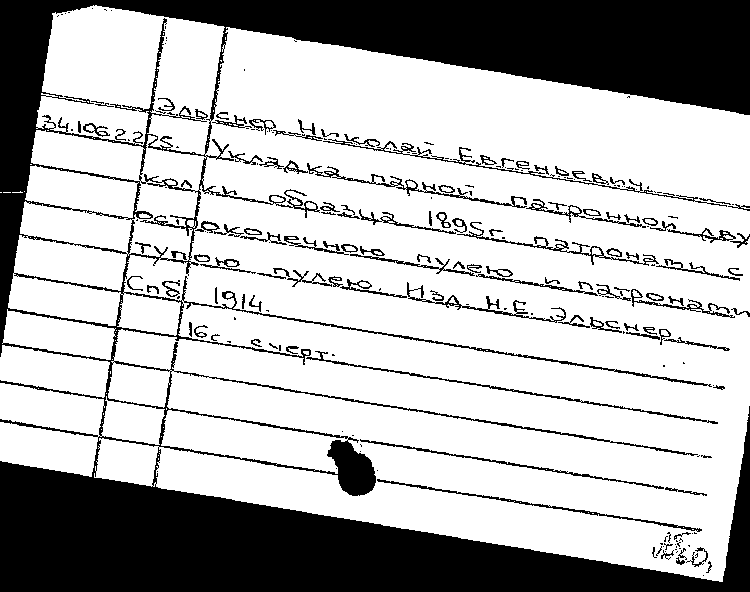 Эльснер, Николай Евгеньевич.
34.106.2.225. Укладка парной патронной дву
колки образца 1895г. патронами с
остроконечною пулею и патронами
тупою пулею. Изд. Н.Е. Эльснер.
Спб, 1914.
16с. с черт.